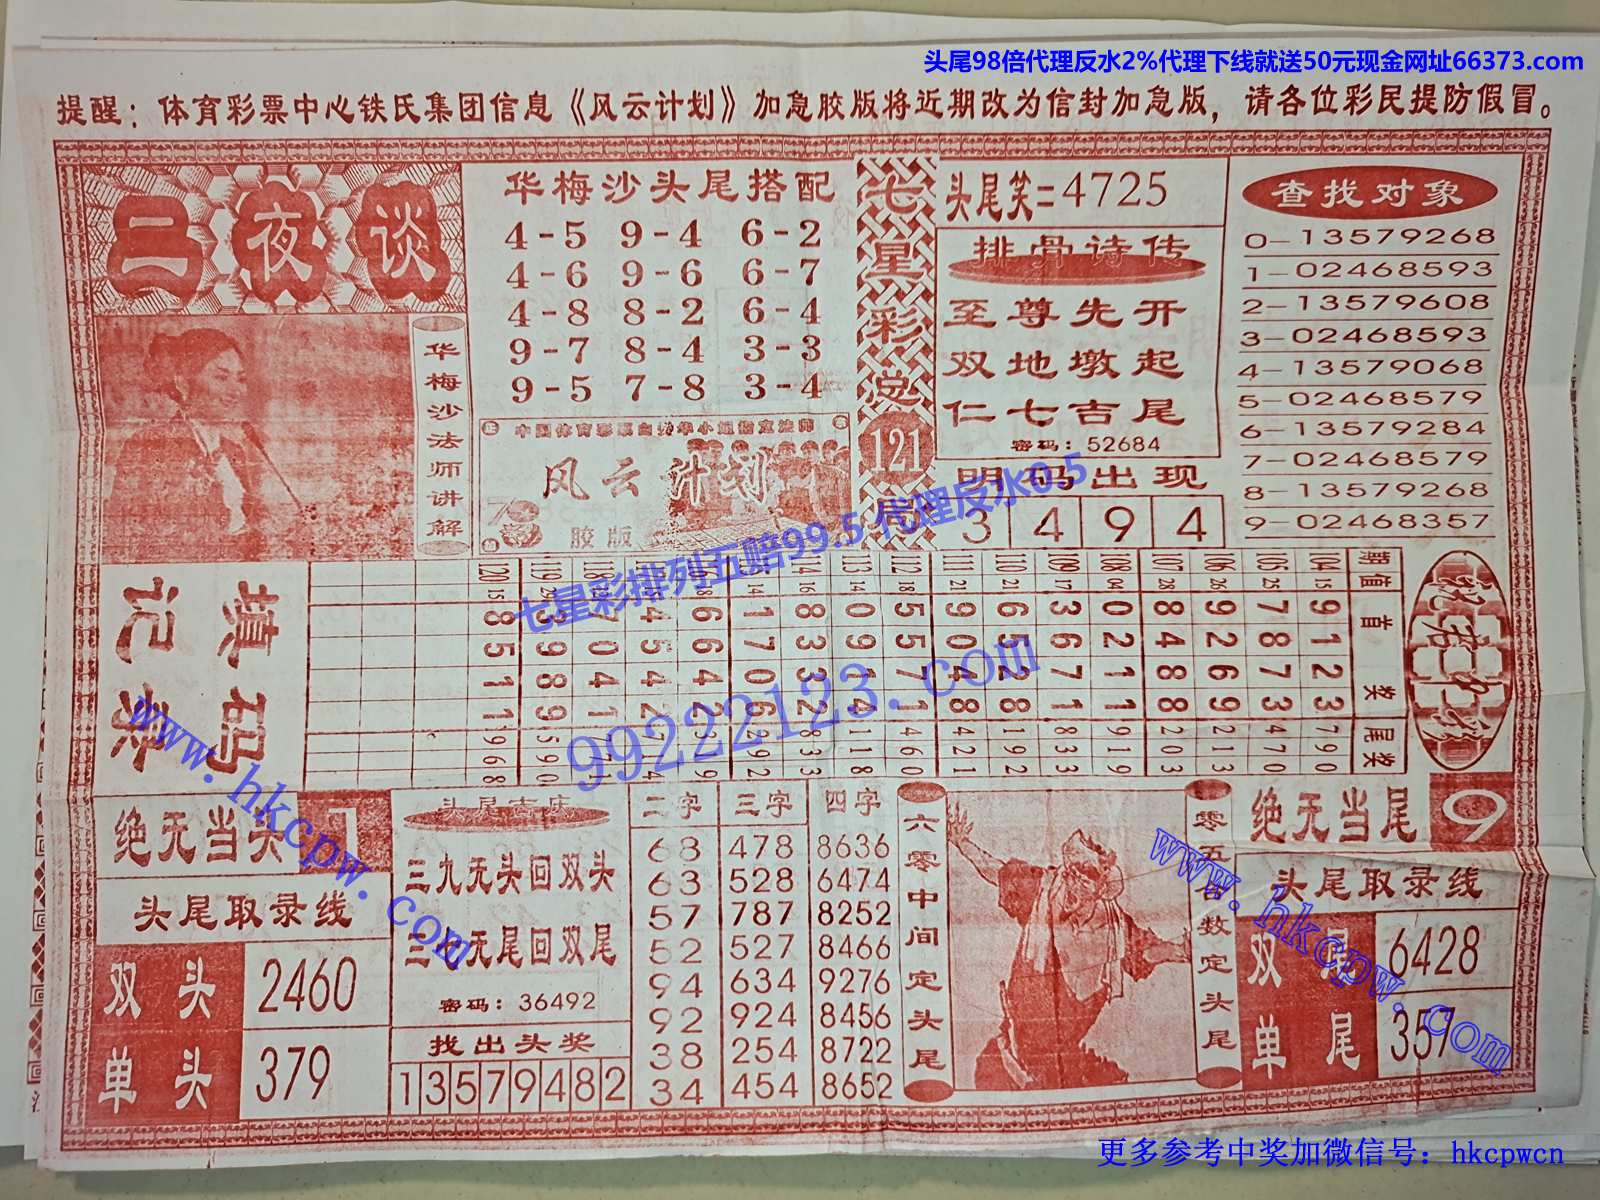 头尾98倍代理反水2%代理下线就送50元现金网址66373.com
提醒：体育彩票中心铁氏集团信息《风云计划》加急胶版将近期改为信封加急版，请各位彩民提防假冒。
二夜谈
华梅沙法师讲解
华梅沙头尾搭配
4-5 9-4 6-2
4-6 9-6 6-7
4-8 8-2 6-4
9-7 8-4 3-3
9-5 7-8 3-4
风云计划
胶版
七星彩总121局
头尾笑二4725
排骨诗传
至尊先开
双地墩起
仁七吉尾
密码：52684
明码出现
3 4 9 4
查找对象
0-13579268
1-02468593
2-13579608
3-02468593
4-13579068
5-02468579
6-13579284
7-02468579
8-13579268
9-02468357
七星彩排列五赔99.5 代理反水0.5
99222123.com
www.hkcpw.com
www.hkcpw.com
填码记录
期 值 首奖 尾奖
104 15 9123 790
105 25 7873 470
106 26 9269 213
107 28 8488 203
108 04 0211 919
109 17 3671 833
110 21 6528 192
111 21 9048 421
112 18 5571 460
120 15 8511 968
绝无当头
头尾取录线
双头 2460
单头 379
头尾吉庆
三九无头回双头
三七无尾回双尾
密码：36492
找出头奖
13579482
二字 三字 四字
68 478 8636
63 528 6474
57 787 8252
52 527 8466
94 634 9276
92 924 8456
38 254 8722
34 454 8652
六零中间定头尾
绝无当尾 9
头尾取录线
双尾 6428
单尾 357
更多参考中奖加微信号：hkcpwcn